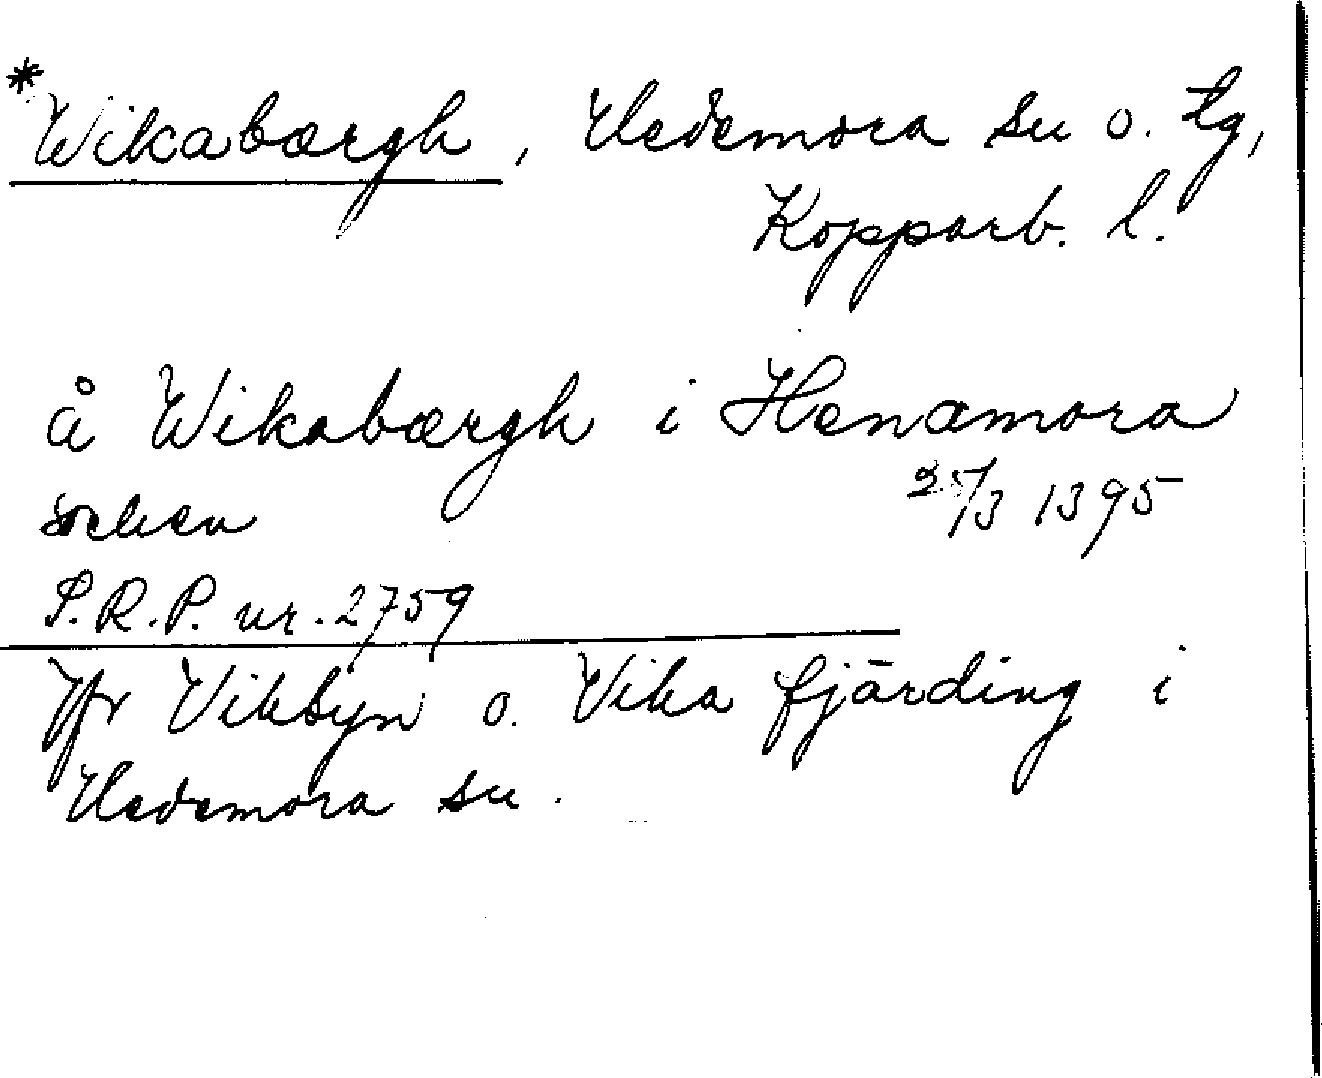 *Wikabærgh, Hedemora sn o. tg,
Kopparb. l.
å Wikabærgh i Henamora
socken 25/3 1395
S.R.P. nr. 2759
Jfr Viksyn o. Vika fjärding i
Hedemora sn.